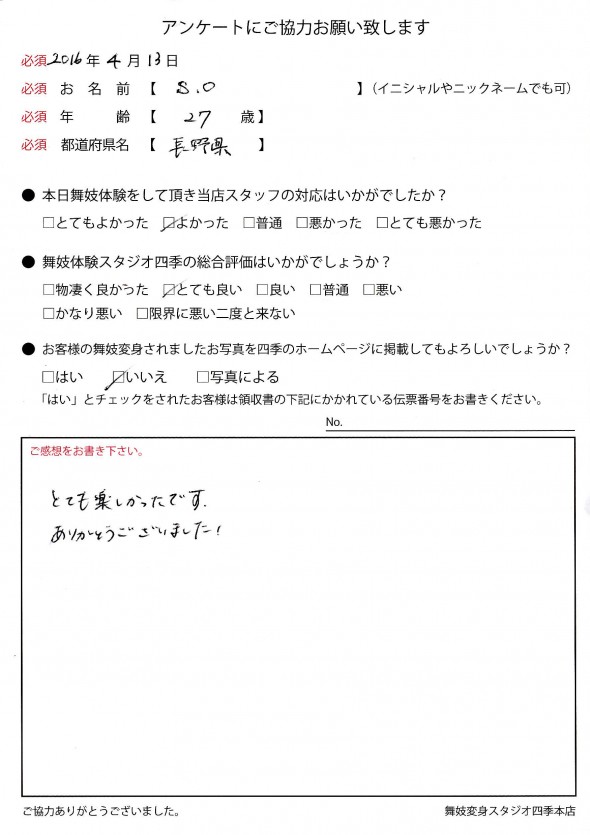 アンケートにご協力お願い致します
必須 2016年 4月 13日
必須 お名前 【 S.O 】（イニシャルやニックネームでも可）
必須 年齢 【 27 歳】
必須 都道府県名 【 長野県 】
● 本日舞妓体験をして頂き当店スタッフの対応はいかがでしたか？
□とてもよかった ☑よかった □普通 □悪かった □とても悪かった
● 舞妓体験スタジオ四季の総合評価はいかがでしょうか？
□物凄く良かった ☑とても良い □良い □普通 □悪い
□かなり悪い □限界に悪い二度と来ない
● お客様の舞妓変身されましたお写真を四季のホームページに掲載してもよろしいでしょうか？
□はい ☑いいえ □写真による
「はい」とチェックをされたお客様は領収書の下記にかかれている伝票番号をお書きください。
No.
ご感想をお書き下さい。
とても楽しかったです.
ありがとうございました!
ご協力ありがとうございました。 舞妓変身スタジオ四季本店